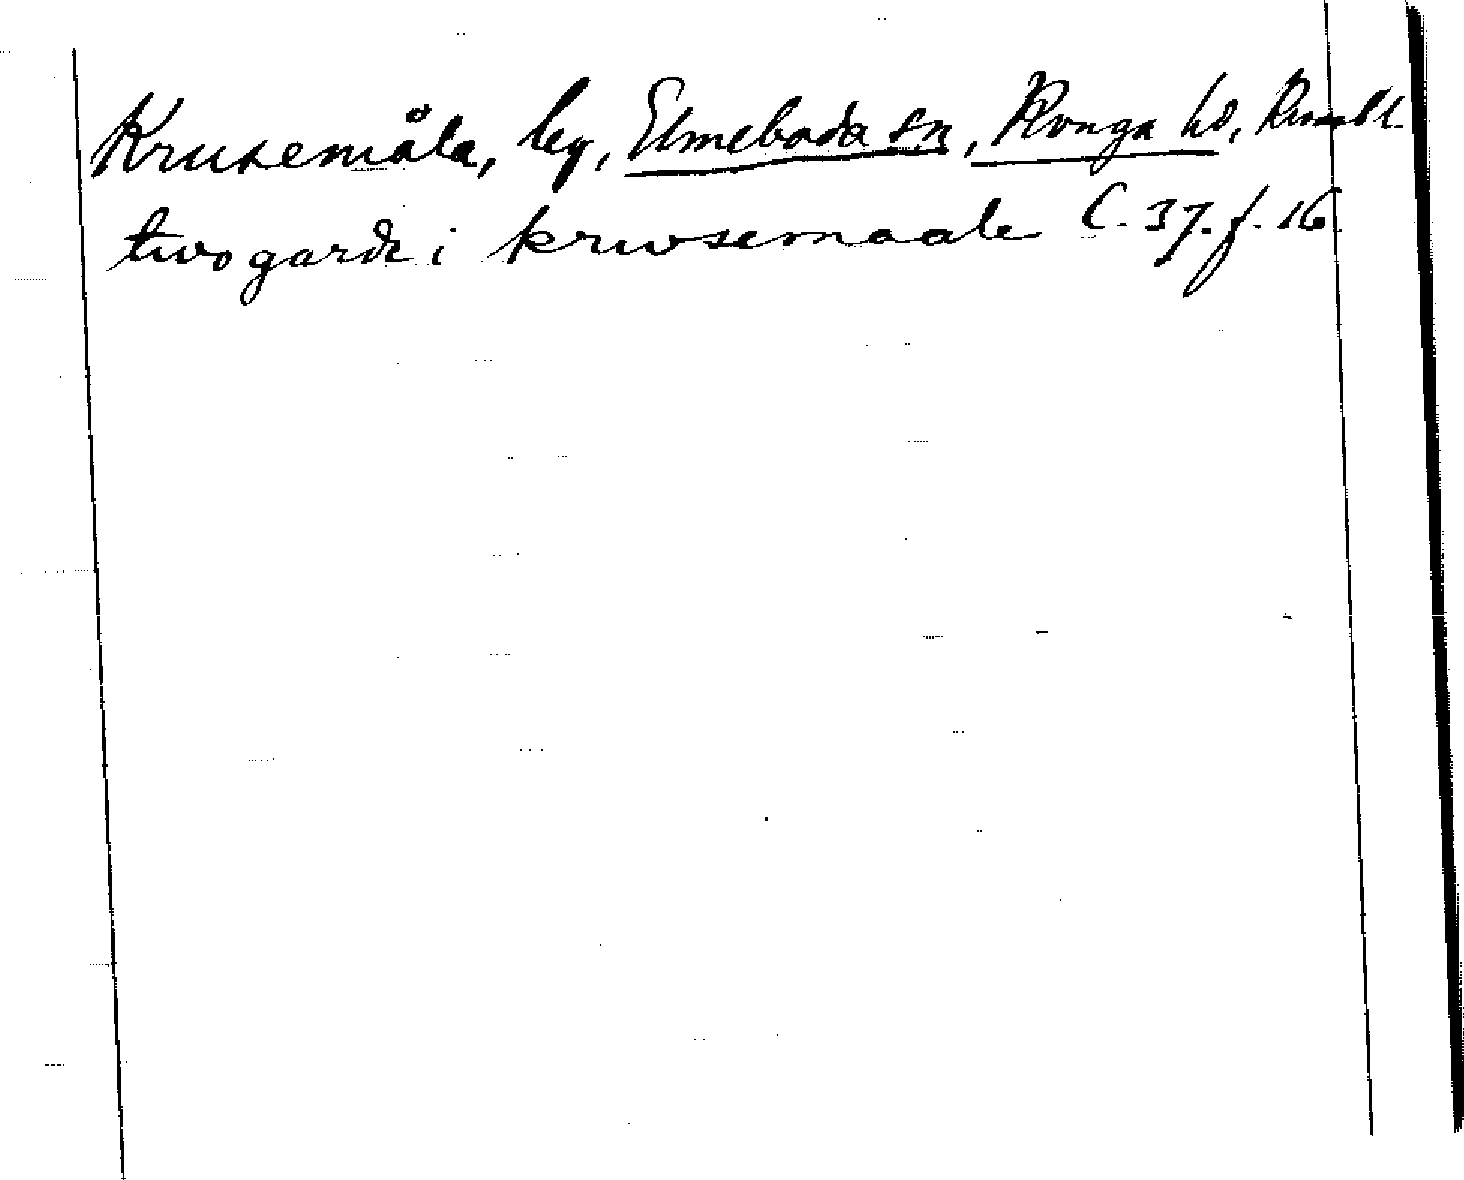 Krusemåla, by, Elmeboda sn, Konga hd,
two garde i krwsemaale C. 37. f. 16